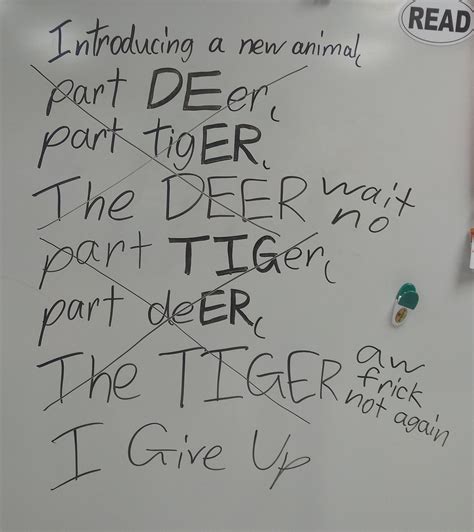 READ
Introducing a new animal,
part DEer,
part tigER,
The DEER wait
no
part TIGer,
part deER,
The TIGER aw
frick
not again
I Give Up